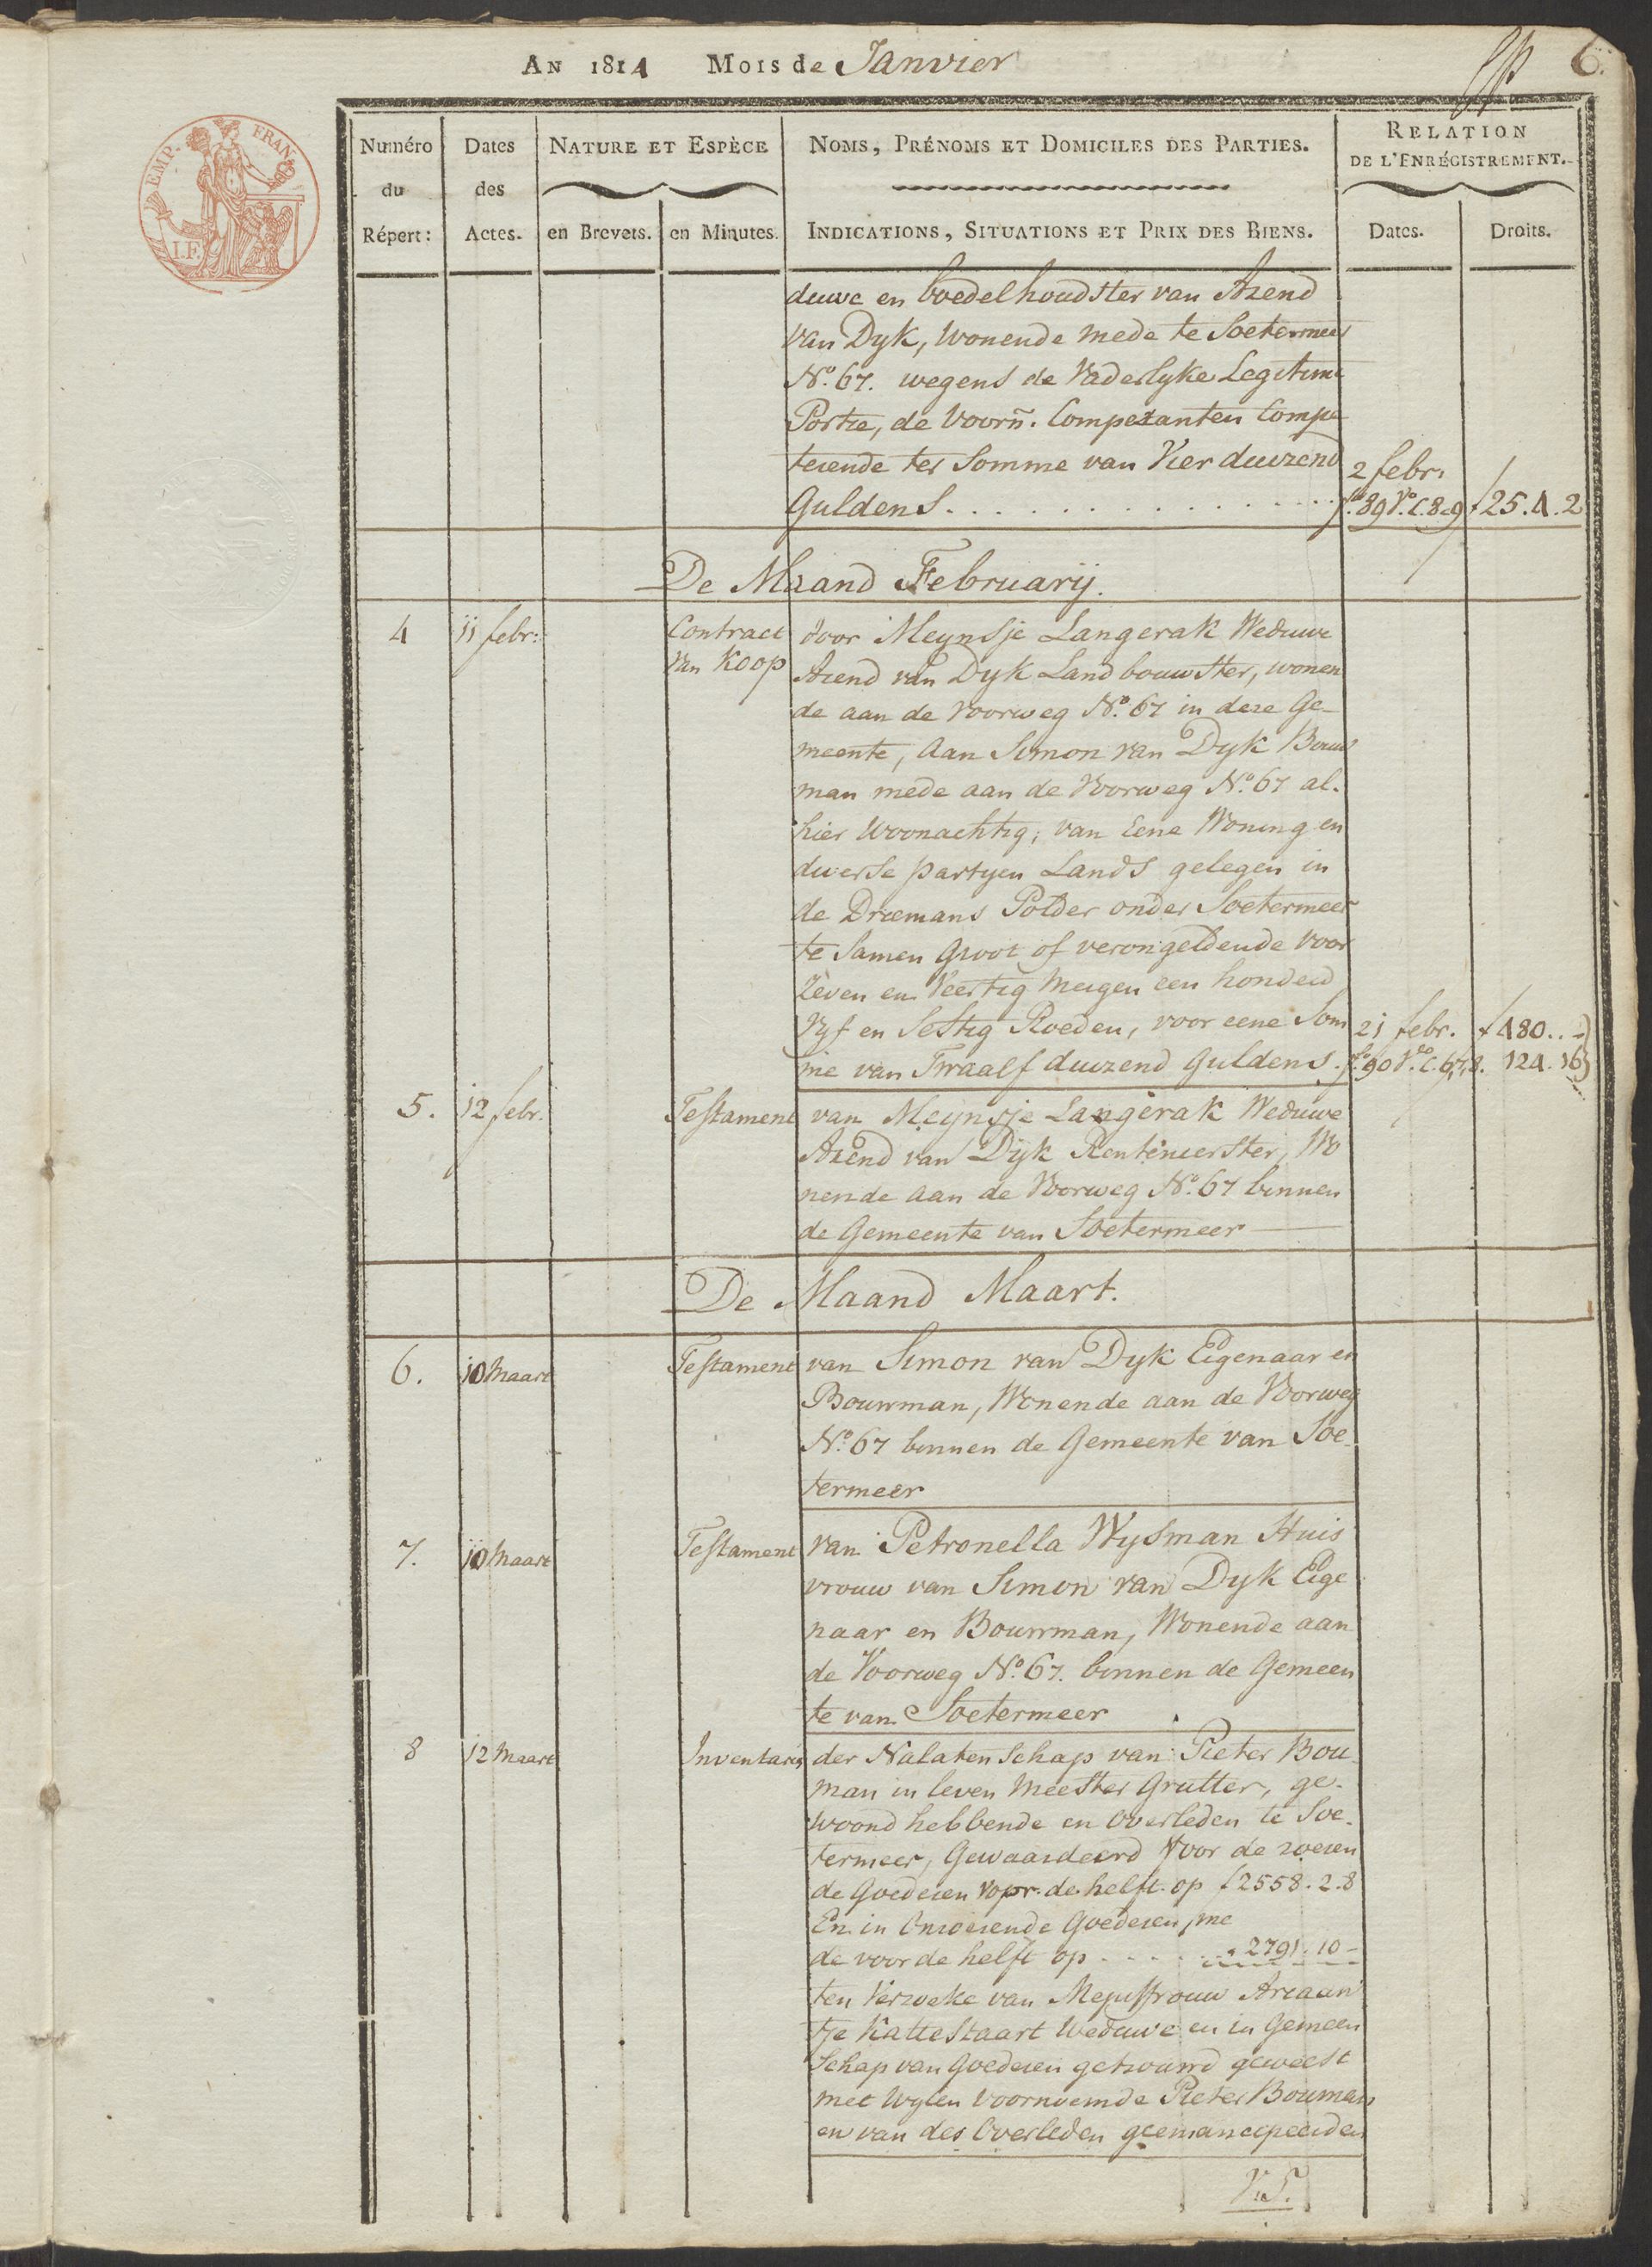 AN 1814 MOIS de Janvier
6.
EMP. FRAN
I.F.
Numéro du Répert:
Dates des Actes.
NATURE ET ESPÈCE
en Brevets. en Minutes.
NOMS, PRÉNOMS ET DOMICILES DES PARTIES.
INDICATIONS, SITUATIONS ET PRIX DES BIENS.
RELATION
DE L'ENRÉGISTREMENT.
Dates. Droits.
duwe en boedelhoudster van Arend
van Dyk, Wonende mede te Soetermeer
No. 67. wegens de Vaderlyke Legitime
Portie, de Voorn. Comparanten Compe
terende ter Somme van Vier duizend 2 febr.
Guldens fo. 89 Vo. C. 8.9 f 25.4.2
De Maand Februarij.
4 11 febr: Contract door Meynsje Langerak Weduwe
van Koop Arend van Dyk Landbouwster, wonen
de aan de Voorweg No. 67 in deze Ge-
meente, Aan Simon van Dyk Bouw
man mede aan de Voorweg No. 67 al-
hier Woonachtig; van Eene Woning en
diverse partyen Lands gelegen in
de Driemans Polder onder Soetermeer
te Samen Groot of verongeldende voor
Zeven en Veertig Mergen een honderd
Vyf en Sestig Roeden, voor eene Som 21 febr. f 480..-
me van Twaalf duizend Guldens. fo. 90 Vo. C. 6,7,8. 124.16
5. 12 febr. Testament van Meynsje Langerak Weduwe
Arend van Dijk Renteneerster, Wo
nende aan de Voorweg No. 67 binnen
de Gemeente van Soetermeer
De Maand Maart.
6. 10 Maart Testament van Simon van Dyk Eigenaar en
Bouwman, Wonende aan de Voorweg
No. 67 binnen de Gemeente van Soe
termeer
7. 10 Maart Testament van Petronella Wysman Huis
vrouw van Simon van Dyk Eige
naar en Bouwman, Wonende aan
de Voorweg No. 67. binnen de Gemeen
te van Soetermeer
8 12 Maart Inventaris der Nalatenschap van Pieter Bou-
man in leven Meester Grutter, ge-
woond hebbende en Overleden te Soe-
termeer, Gewaardeerd Voor de roeren
de Goederen voor de helft op f 2558.2.8
En in Onroerende Goederen me
de voor de helft op - 2791.10-
ten Verzoeke van Mejuffrouw Ariaan
tje Kattestaart Weduwe en in Gemeen
Schap van Goederen getrouwd geweest
met Wylen Voornoemde Pieter Bouman
en van des Overleden geemancipeerden